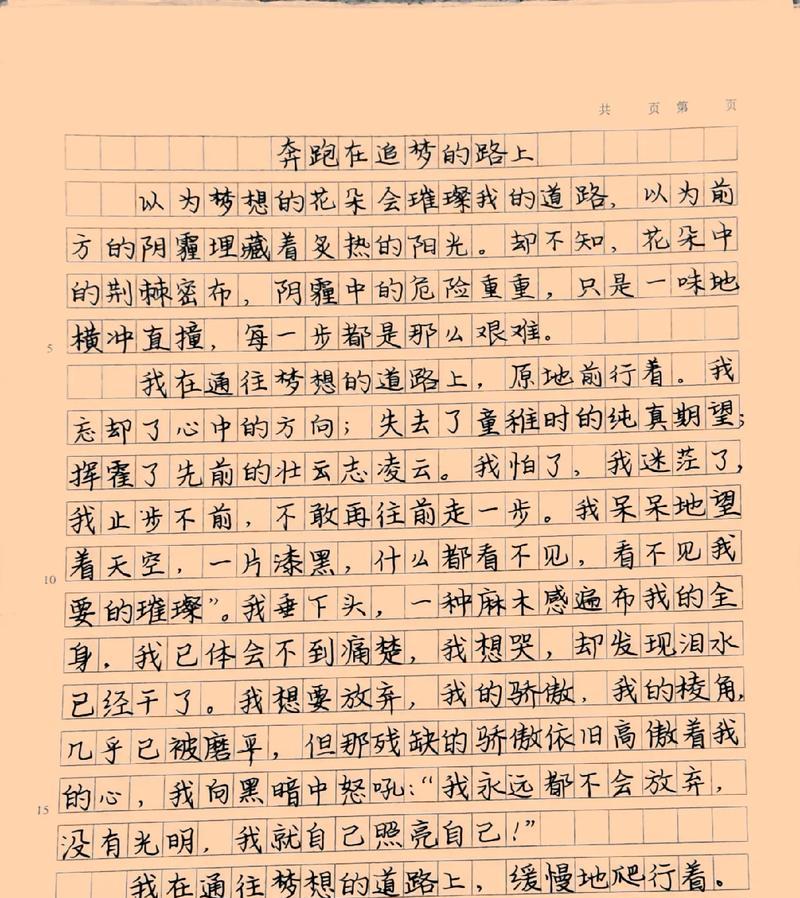 共 页 第 页
奔跑在追梦的路上
以为梦想的花朵会璀璨我的道路，以为前
方的阴霾埋藏着炙热的阳光。却不知，花朵中
的荆棘密布，阴霾中的危险重重，只是一味地
5 横冲直撞，每一步都是那么艰难。
我在通往梦想的道路上，原地前行着。我
忘却了心中的方向；失去了童稚时的纯真期望；
挥霍了先前的壮云志凌云。我怕了，我迷茫了，
我止步不前，不敢再往前走一步。我呆呆地望
10 着天空，一片漆黑，什么都看不见，看不见我
要的璀璨”。我垂下头，一种麻木感遍布我的全
身，我已体会不到痛楚，我想哭，却发现泪水
已经干了。我想要放弃，我的骄傲，我的棱角，
几乎已被磨平，但那残缺的骄傲依旧高傲着我
15 的心，我向黑暗中怒吼：“我永远都不会放弃，
没有光明，我就自己照亮自己！”
我在通往梦想的道路上，缓慢地爬行着。